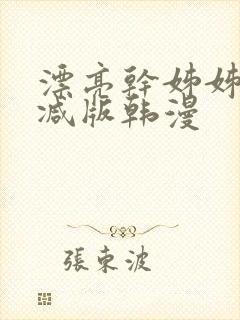 漂亮幹姊姊
减版韩漫
張東波